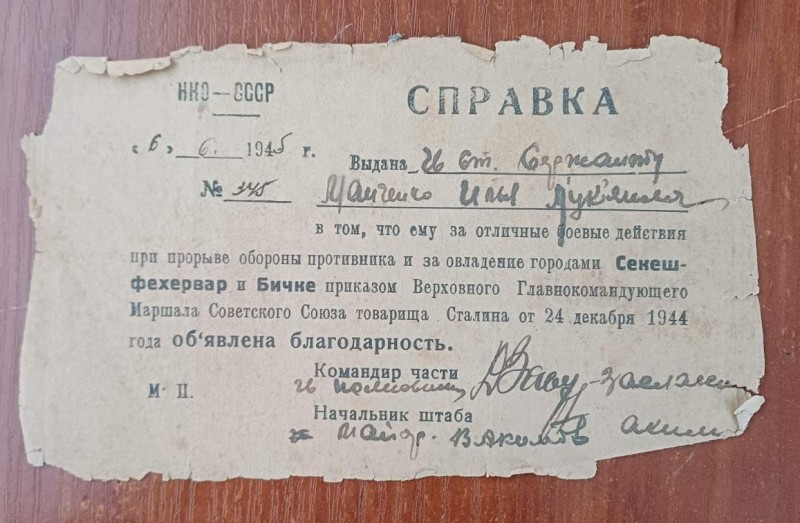 НКО—СССР
СПРАВКА
«6» 6. 1945 г.
Выдана гв ст. Сержанту
№ 345
Илья
в том, что ему за отличные боевые действия
при прорыве обороны противника и за овладение городами Секеш-
фехервар и Бичке приказом Верховного Главнокомандующего
Маршала Советского Союза товарища Сталина от 24 декабря 1944
года об‘явлена благодарность.
Командир части
М П.
гв полковник
Начальник штаба
майор